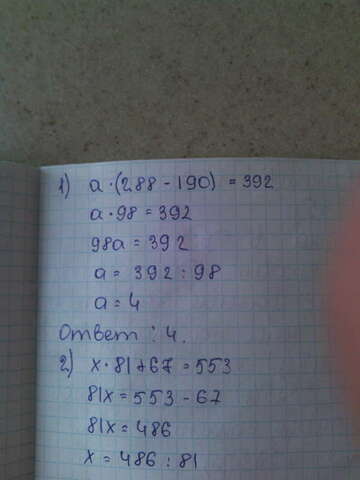 1) a·(288-190) = 392
a·98 = 392
98a = 392
a = 392 : 98
a = 4
Ответ : 4.
2) x·81+67 = 553
81x = 553 - 67
81x = 486
x = 486 : 81